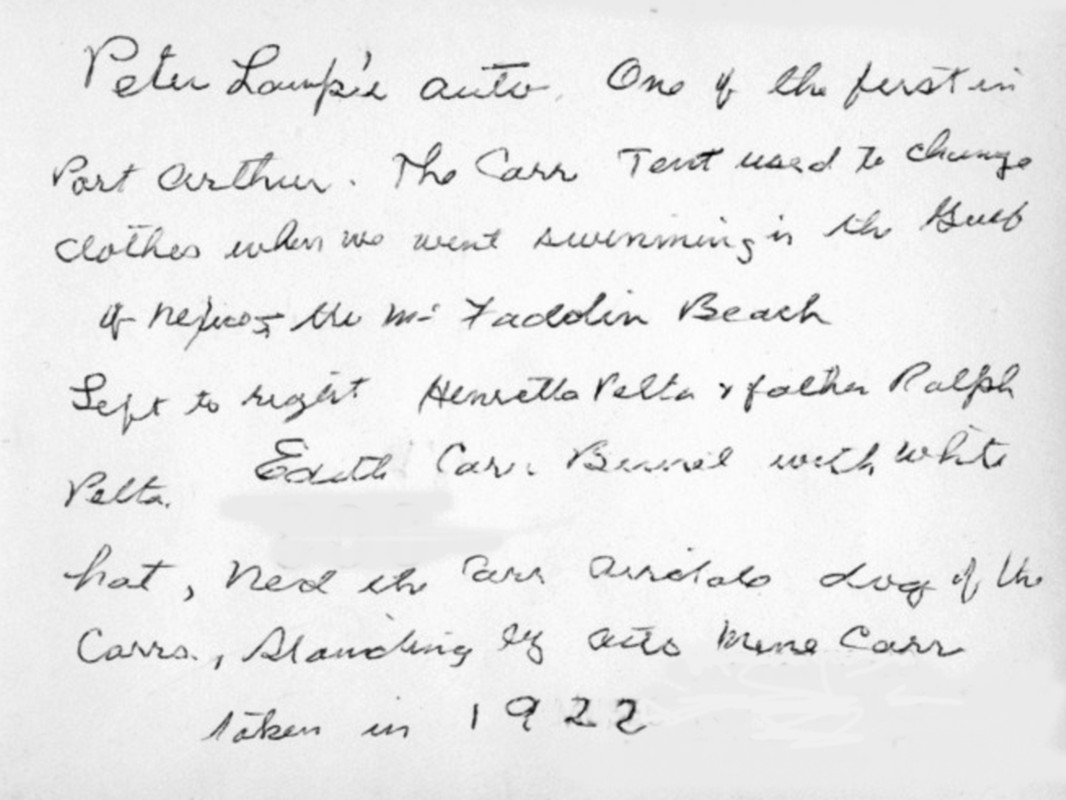 Peter Lamp's auto. One of the first in
Port Arthur. The Carr Tent used to change
clothes when we went swimming in the Gulf
of Mexico, the Mc Faddin Beach
Left to right Henretta Pelta & father Ralph
Pelta. Edith Carr with white
hat, Ned the Carr Airdale dog of the
Carrs, Standing by auto Irene Carr
taken in 1922